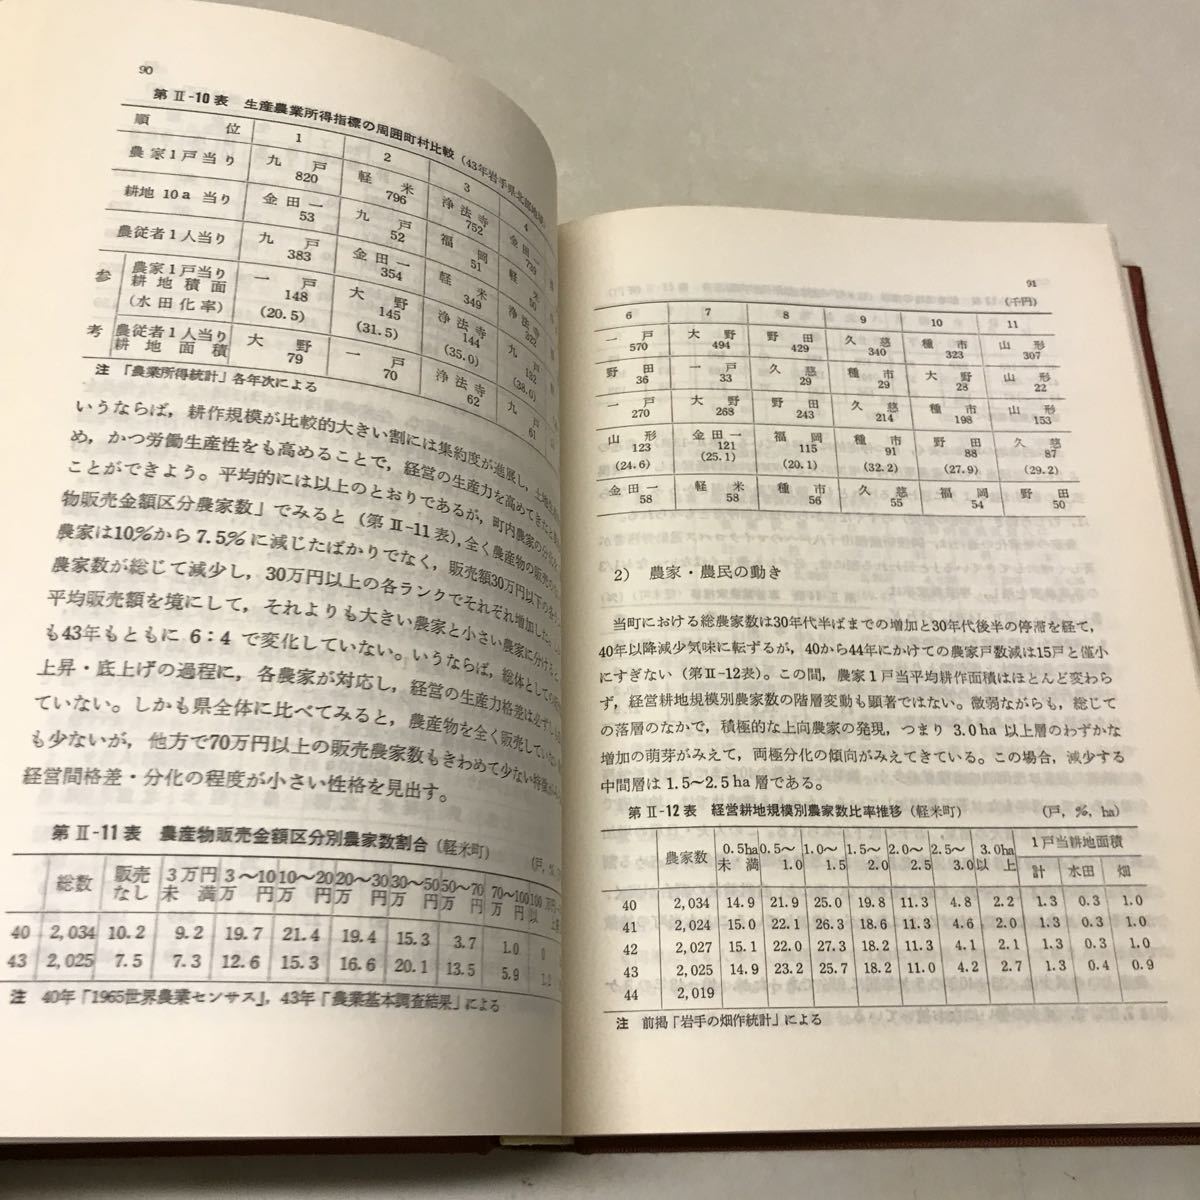 90
第Ⅱ-10表 生産農業所得指標の周囲町村比較(43年岩手県北部地域)
順 位 1 2 3 4
農家1戸当り 九戸 820 軽米 796 浄法寺 752 金田一 739
耕地10a当り 金田一 53 九戸 52 福岡 51 軽米 50
農従者1人当り 九戸 383 金田一 354 軽米 349 浄法寺
参考 農家1戸当り耕地積面(水田化率) 一戸 148 (20.5) 大野 145 (31.5) 浄法寺 144 (35.0) 九戸 132 (38.0)
農従者1人当り耕地面積 大野 79 一戸 70 浄法寺 62 九戸 61
注 「農業所得統計」各年次による
いうならば,耕作規模が比較的大きい割には集約度が進展し,土地生
め,かつ労働生産性をも高めることで,経営の生産力を高めてきたと
ことができよう。平均的には以上のとおりであるが,町内農家の分
物販売金額区分農家数」でみると(第Ⅱ-11表),全く農産物の販売の
農家は10%から7.5%に減じたばかりでなく,販売額30万円以下の各
農家数が総じて減少し,30万円以上の各ランクでそれぞれ増加した。
平均販売額を境にして,それよりも大きい農家と小さい農家に分けると
も43年もともに6:4で変化していない。いうならば,総体としての
上昇・底上げの過程に,各農家が対応し,経営の生産力格差は必ずし
ていない。しかも県全体に比べてみると,農産物を全く販売してい
も少ないが,他方で70万円以上の販売農家数もきわめて少ない特徴
経営間格差・分化の程度が小さい性格を見出す。
第Ⅱ-11表 農産物販売金額区分別農家数割合(軽米町) (戸,%
総数 販売なし 3万円未満 3〜10万円 10〜20万円 20〜30万円 30〜50万円 50〜70万円 70〜100万円 100万円以上
40 2,034 10.2 9.2 19.7 21.4 19.4 15.3 3.7 1.0 0
43 2,025 7.5 7.3 12.6 15.3 16.6 20.1 13.5 5.9
注 40年「1965世界農業センサス」,43年「農業基本調査結果」による
91
(千円)
6 7 8 9 10 11
一戸 570 大野 494 野田 429 久慈 340 種市 323 山形 307
野田 36 一戸 33 久慈 29 種市 29 大野 28 山形 22
一戸 270 大野 268 野田 243 久慈 214 種市 198 山形 153
山形 123 (24.6) 金田一 121 (25.1) 福岡 115 (20.1) 種市 91 (32.2) 野田 88 (27.9) 久慈 87 (29.2)
金田一 58 軽米 58 種市 56 久慈 55 福岡 54 野田 50
2) 農家・農民の動き
当町における総農家数は30年代半ばまでの増加と30年代後半の停滞を経て,
40年以降減少気味に転ずるが,40から44年にかけての農家戸数減は15戸と僅小
にすぎない(第Ⅱ-12表)。この間,農家1戸当平均耕作面積はほとんど変わら
ず,経営耕地規模別農家数の階層変動も顕著ではない。微弱ながらも,総じて
の落層のなかで,積極的な上向農家の発現,つまり3.0ha以上層のわずかな
増加の萌芽がみえて,両極分化の傾向がみえてきている。この場合,減少する
中間層は1.5〜2.5ha層である。
第Ⅱ-12表 経営耕地規模別農家数比率推移(軽米町) (戸,%,ha)
農家数 0.5ha未満 0.5〜1.0 1.0〜1.5 1.5〜2.0 2.0〜2.5 2.5〜3.0 3.0ha以上 1戸当耕地面積 計 水田 畑
40 2,034 14.9 21.9 25.0 19.8 11.3 4.8 2.2 1.3 0.3 1.0
41 2,024 15.0 22.1 26.3 18.6 11.3 4.6 2.0 1.3 0.3 1.0
42 2,027 15.1 22.0 27.3 18.2 11.3 4.1 2.1 1.3 0.3 1.0
43 2,025 14.9 23.2 25.7 18.2 11.0 4.2 2.7 1.3 0.4 0.9
44 2,019
注 前掲「岩手の畑作統計」による